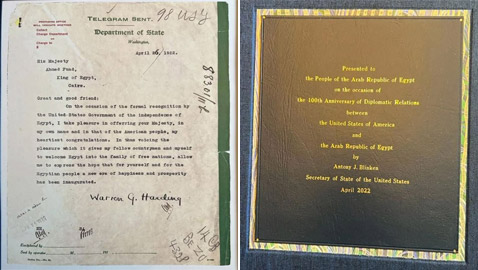 TELEGRAM SENT.
98 USJ
Department of State
Washington,
Collect
Charge Department
Charge to
$
April 26, 1922.
His Majesty
Ahmed Fuad,
King of Egypt,
Cairo.
Great and good friend:
On the occasion of the formal recognition by
the United States Government of the independence of
Egypt, I take pleasure in offering your Majesty, in
my own name and in that of the American people, my
heartiest congratulations. In thus voicing the
pleasure which it gives my fellow countrymen and myself
to welcome Egypt into the family of free nations, allow
me to express the hope that for yourself and for the
Egyptian people a new era of happiness and prosperity
has been inaugurated.
Warren G. Harding
Enciphered by
Sent by operator
Presented to
the People of the Arab Republic of Egypt
on the occasion of
the 100th Anniversary of Diplomatic Relations
between
the United States of America
and
the Arab Republic of Egypt
by
Antony J. Blinken
Secretary of State of the United States
April 2022